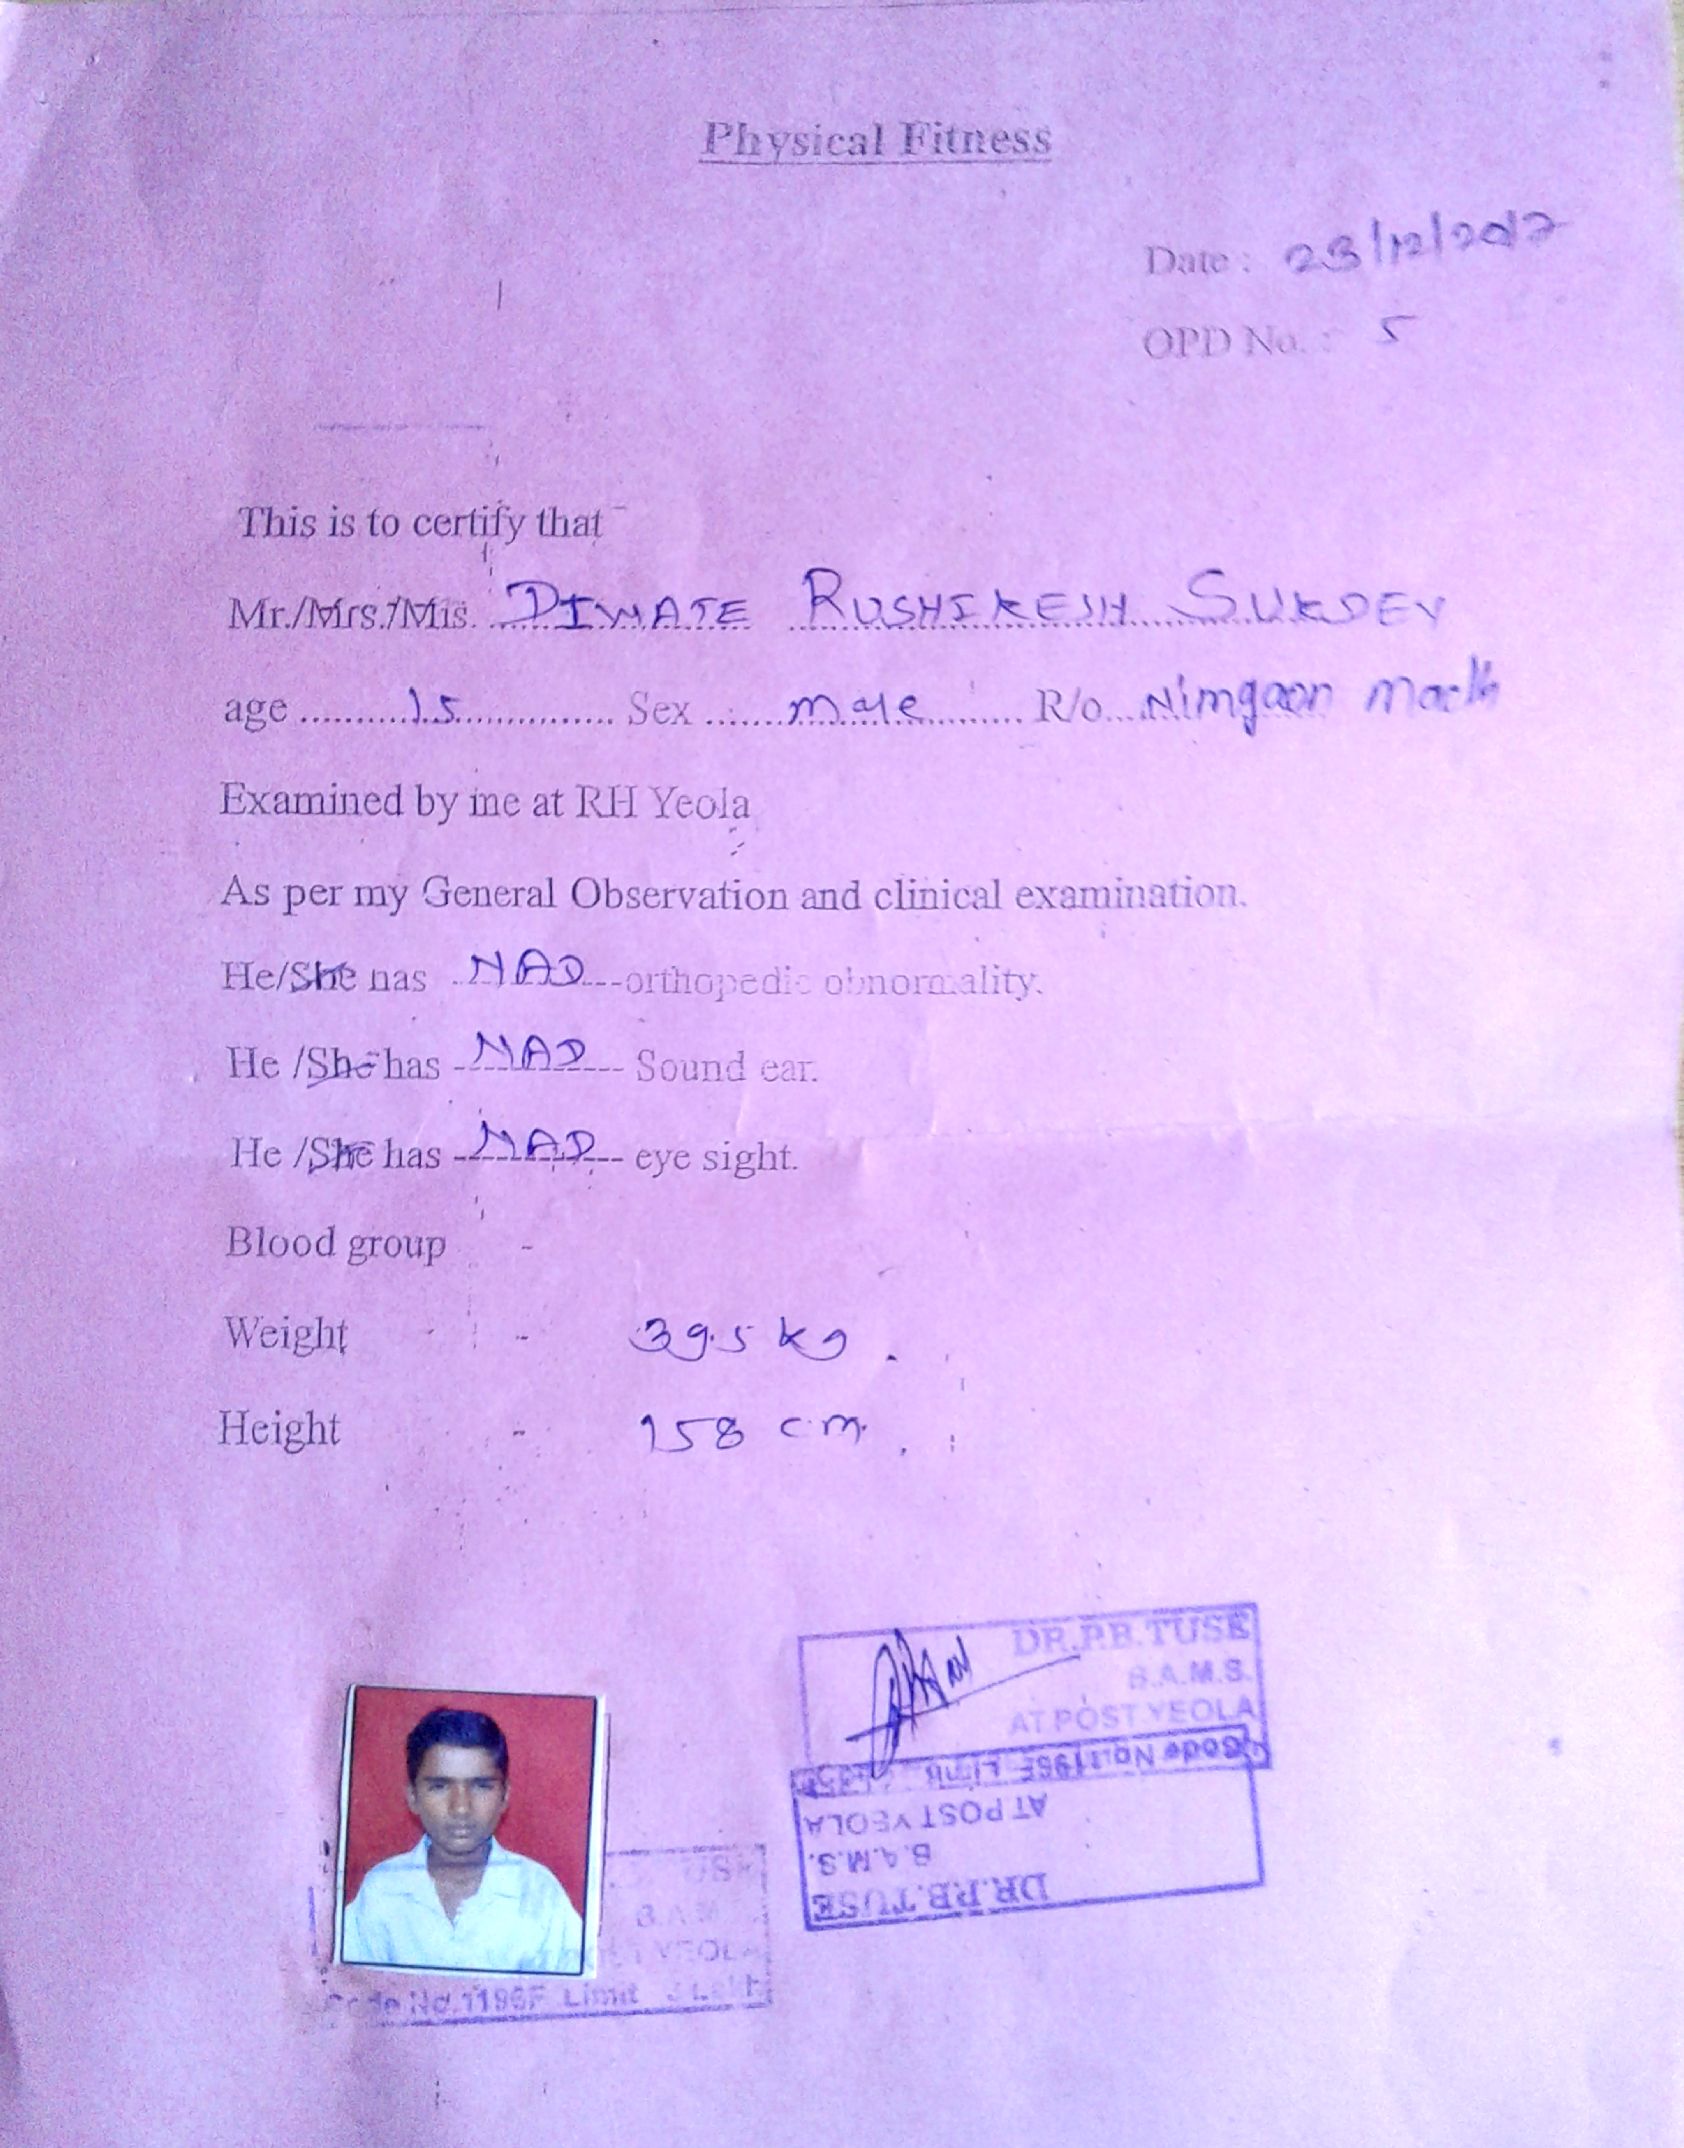 Physical Fitness
Date : 23/12/2017
OPD No. : 5
This is to certify that
Mr./Mrs./Mis. DIWATE RUSHIKESH SUKDEV
age 15 Sex male R/o Nimgaon Madh
Examined by me at RH Yeola
As per my General Observation and clinical examination.
He/She has NAD orthopedic obnormality.
He /She has NAD Sound ear.
He /She has NAD eye sight.
Blood group -
Weight - 39.5 kg.
Height - 158 cm.
DR.P.B.TUSE
B.A.M.S.
AT POST YEOLA
Code No.1196F Limit
AT POST YEOLA
B.A.M.S.
DR.P.B.TUSE
B.A.M
YEOLA
Code No.1196F Limit